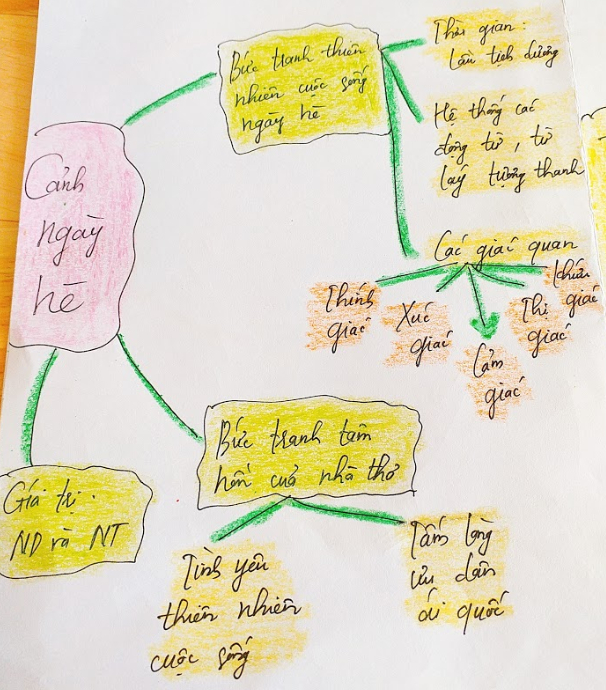 Cảnh
ngày
hè
Bức tranh thiên
nhiên cuộc sống
ngày hè
Thời gian:
lầu tịch dương
Hệ thống các
động từ, từ
láy tượng thanh
Các giác quan
Thính
giác
Xúc
giác
Cảm
giác
Thị
giác
khứu
Bức tranh tâm
hồn của nhà thơ
Tình yêu
thiên nhiên
cuộc sống
Tấm lòng
ưu dân
ái quốc
Giá trị.
ND và NT